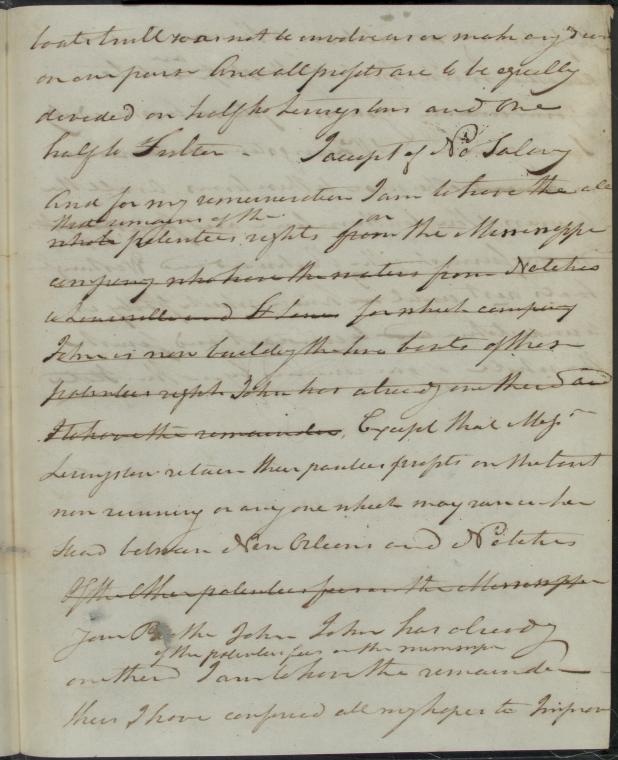 boats I will
on our part And all profits are to be equally
divided on half to Livingstons and One
half to Fulton. I accept of No Salary
And for my remuneration I am to have the all
that remains of the
whole patentees rights from on the Mississippi
company who have the waters from Natches
to Louisville and St Louis for which company
John is now building the two boats of these
patentees right John has already one third and
I to have the remainder. Except that Messrs
Livingston retain their patentees profits on the boat
now running or any one which may run in her
stead between New Orleans and Natches
If the other patentees fees on the Mississippi
your Brother John John has already
of the patentees fees on the Mississippi
one third I am to have the remainder
thus I have confined all my hopes to Improv